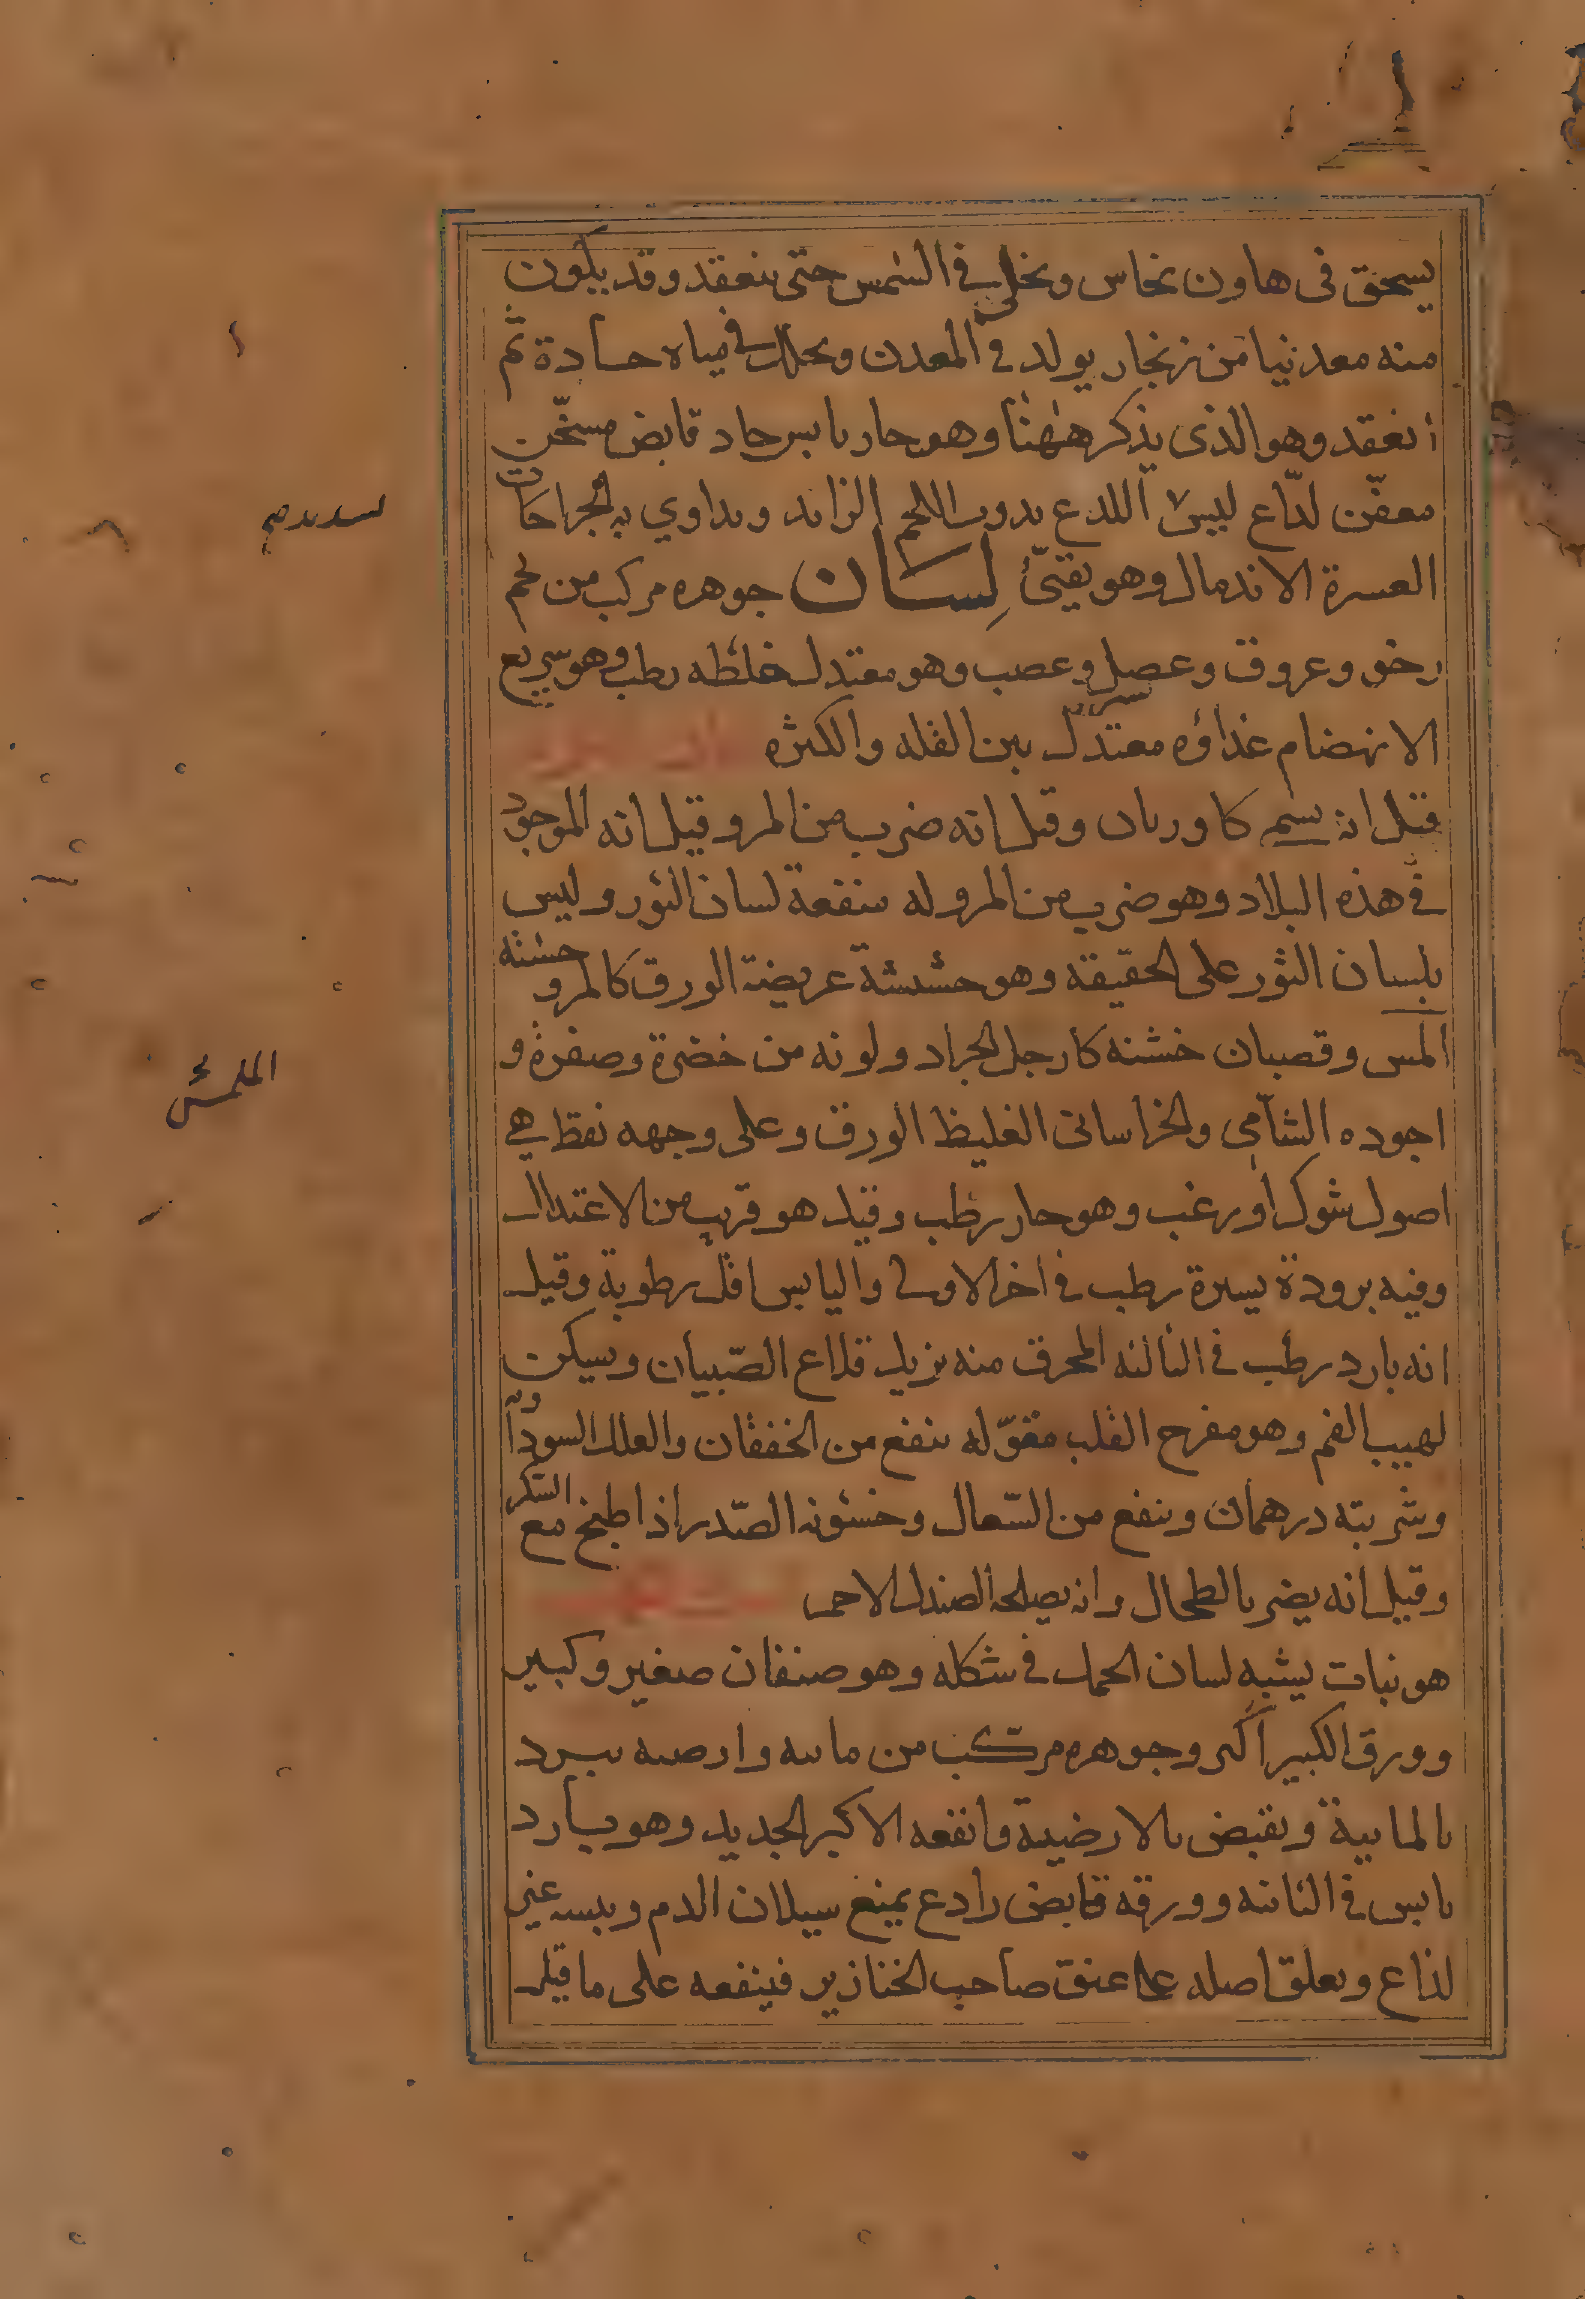 يسحق فى هاون نحاس ويخلى فى الشمس حتى ينعقد وقد يكون
منه معدنيا من زنجار يولد فى المعدن ويحلل فى مياه حادة ثم
انعقد وهو الذى يذكر ههنا وهو حار يابس حاد قابض مسخّن
معفّن لذّاع ليس اللدع يدوب اللحم الزائد ويداوي به الجراحات
العسرة الاندمال وهو يقيّئ لِسَان جوهره مركب من لحم
رخو وعروق وعصل وعصب وهو معتدل خلطه رطب وهو سريع
الانهضام غذاؤه معتدل بين القله والكثره
قيل انه يسمى وقيل انه ضرب من المرو وقيل انه الموجود
فى هذه البلاد وهو ضرب من المرو له منفعة لسان الثور وليس
بلسان الثور على الحقيقه وهو حشيشة عريضة الورق كالمرو خشنه
المس وقضبان خشنه كارجل الجراد ولونه من خضرة وصفرة و
اجوده الشامي والخراسانى الغليظ الورق وعلى وجهه نقط هي
اصول شوك او زغب وهو حار رطب وقيل هو قريب من الاعتدال
وفيه برودة يسيرة رطب فى اخر الاولى واليابس اقل رطوبة وقيل
انه بارد رطب فى الثالثه المحرق منه يزيل قلاع الصّبيان ويسكن
لهيب الفم وهو مفرح القلب مقوّ له ينفع من الخفقان والعلل السوداوية
وشربته درهمان وينفع من السّعال وخشونة الصّدر اذا طبخ مع السّكر
وقيل انه يضر بالطحال وانه يصلحه الصندل الاحمر
هو نبات يشبه لسان الحمل فى شكله وهو صنفان صغير وكبير
وورق الكبير اكبر وجوهره مركّب من مائيه وارضيه يبرد
بالمايية ويقبض بالارضيية وانفعه الاكبر الجديد وهو بارد
يابس فى الثانيه وورقه قابض رادع يمنع سيلان الدم ويبسه غير
لذاع ويعلق اصله على عنق صاحب الخنازير فينفعه على ما قيل